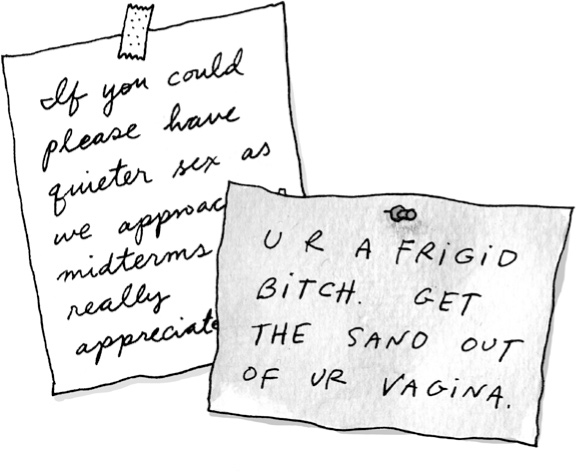 If you could
please have
quieter sex as
we approac
midterms
really
appreciate
U R A FRiGiD
BiTCH. GET
THE SAND OUT
OF UR VAGiNA.